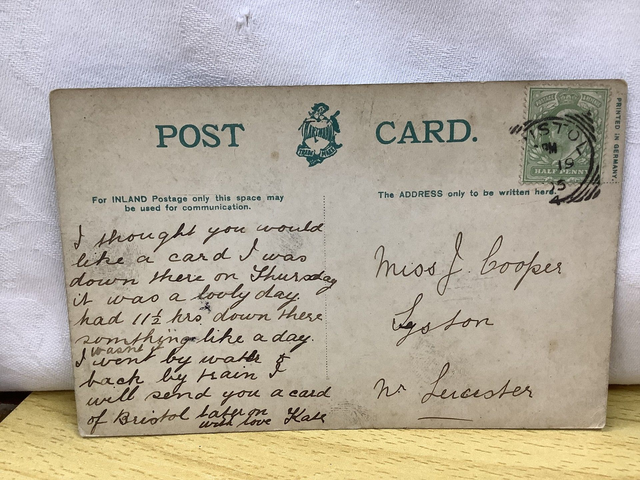 POST CARD.
PRINTED IN GERMANY.
HALF PENNY
PM
19
For INLAND Postage only this space may
be used for communication.
The ADDRESS only to be written here.
I thought you would
like a card I was
down there on Thursday
it was a lovly day.
had 11½ hrs down there
something like a day.
wasnt
I went by water &
back by train I
will send you a card
of Bristol later on
with love Kate
Miss J. Cooper
Syston
Nr Leicester